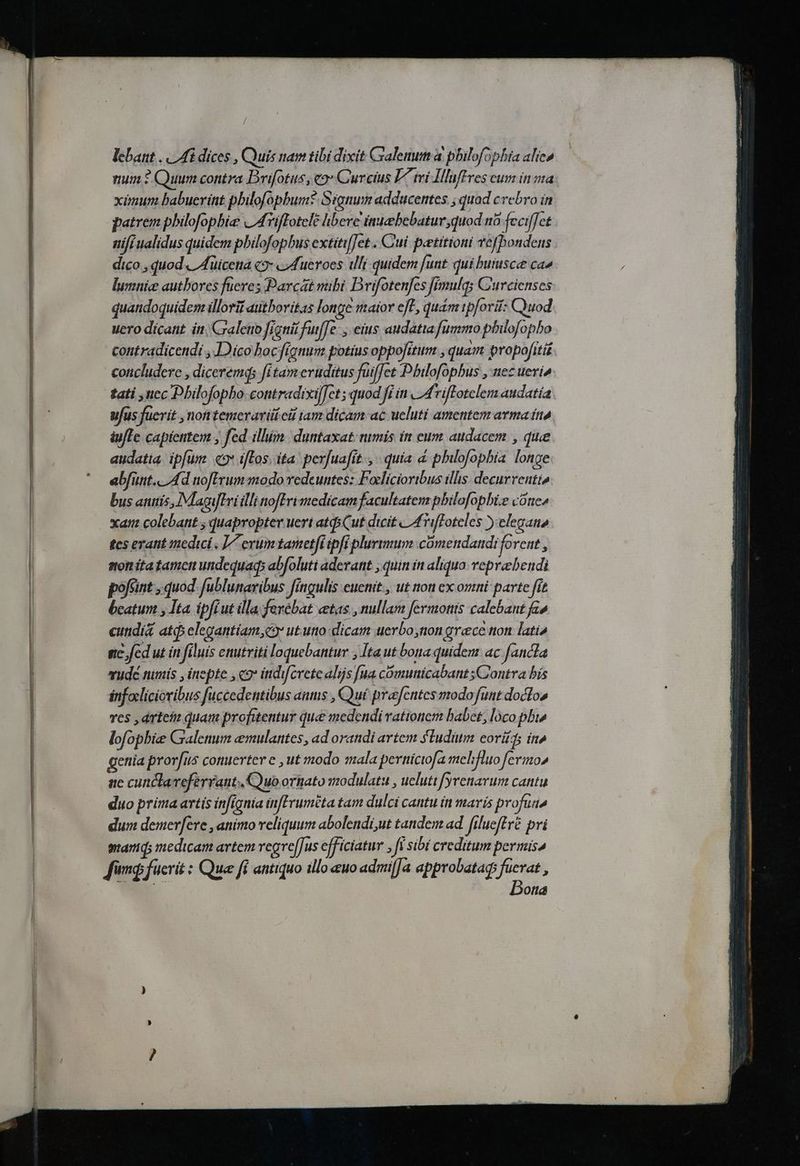 lebant . At dices , Quis nam tibi dixit Galenum a' philosophia alie⸗
num ? Quum contra Brisotus, & Curcius Viri Illustres eum in ma
ximum habuerint philosophum? Signum adducentes , quod crebro in
patrem philosophiæ Aristotelē libere inuæhebatur,quod nō fecisset
nisi ualidus quidem philosophus extitisset . Cui pætitioni respondens
dico , quod Auicena & Aueroes illi quidem sunt qui huiusce ca⸗
lumniæ authores fuere; Parcāt mihi Brisotenses simulq; Curcienses
quandoquidem illorū authoritas longe maior est, quàm ipsorū: Quod
uero dicant in Galeno signū fuisse , eius audatia summo philosopho
contradicendi , Dico hoc signum potius oppositum , quam propositū
concludere , diceremq; si tam eruditus fuisset Philosophus , nec ueri⸗
tati , nec Philosopho contradixisset ; quod si in Aristotelem audatia
usus fuerit , non temerariū eū iam dicam ac ueluti amentem arma in⸗
iuste capientem , sed illum duntaxat nimis in eum audacem , quæ
audatia ipsum & istos ita persuasit , quia á philosophia longe
absunt. Ad nostrum modo redeuntes: Fœlicioribus illis decurrenti⸗
bus annis, Magistri illi nostri medicam facultatem philosophiæ cōne⸗
xam colebant , quapropter ueri atq;(ut dicit Aristoteles ) elegan⸗
tes erant medici . Verùm tametsi ipsi plurimum cōmendandi forent ,
non ita tamen undequaq; absoluti aderant , quin in aliquo repræhendi
possint , quod sublunaribus singulis euenit , ut non ex omni parte sit
beatum , Ita ipsi ut illa ferēbat ætas , nullam sermonis calebant fa⸗
cundiā atq; elegantiam,& ut uno dicam uerbo,non græce non lati⸗
ne,sed ut in siluis enutriti loquebantur , Ita ut bona quidem ac sancta
rudé nimis , inepte , & indiscrete alijs sua cōmunicabant ; Contra his
infœlicioribus succedentibus annis , Qui præsentes modo sunt docto⸗
res , artem quam profitentur quæ medendi rationem habet, loco phi⸗
losophiæ Galenum æmulantes, ad orandi artem studium eorūq; in⸗
genia prorsus conuerter e , ut modo mala perniciosa melifluo sermo⸗
ne cuncta referrant. Quo ornato modulatu , ueluti syrenarum cantu
duo prima artis insignia instrumēta tam dulci cantu in maris profun⸗
dum demersere , animo reliquum abolendi,ut tandem ad siluestrē pri
mamq; medicam artem regressus efficiatur , si sibi creditum permis⸗
sumq; fuerit : Quæ si antiquo illo æuo admissa approbataq; fuerat ,
Bona